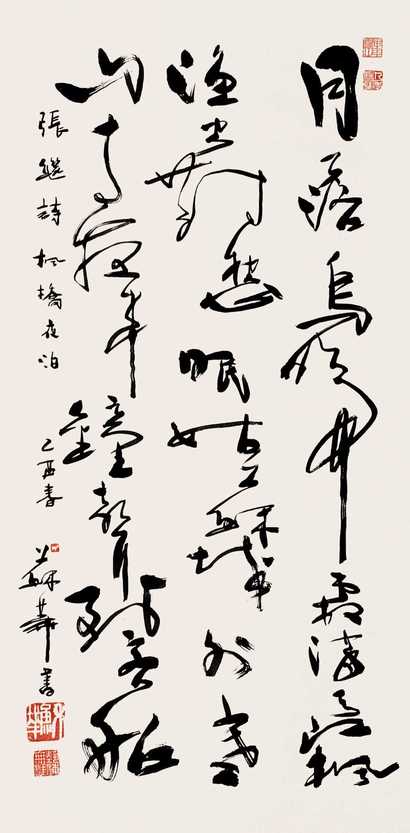 月落烏啼霜滿天江楓
漁火對愁眠姑蘇城外寒
山寺夜半鐘聲到客船
張繼詩楓橋夜泊 乙酉春 蘇華書